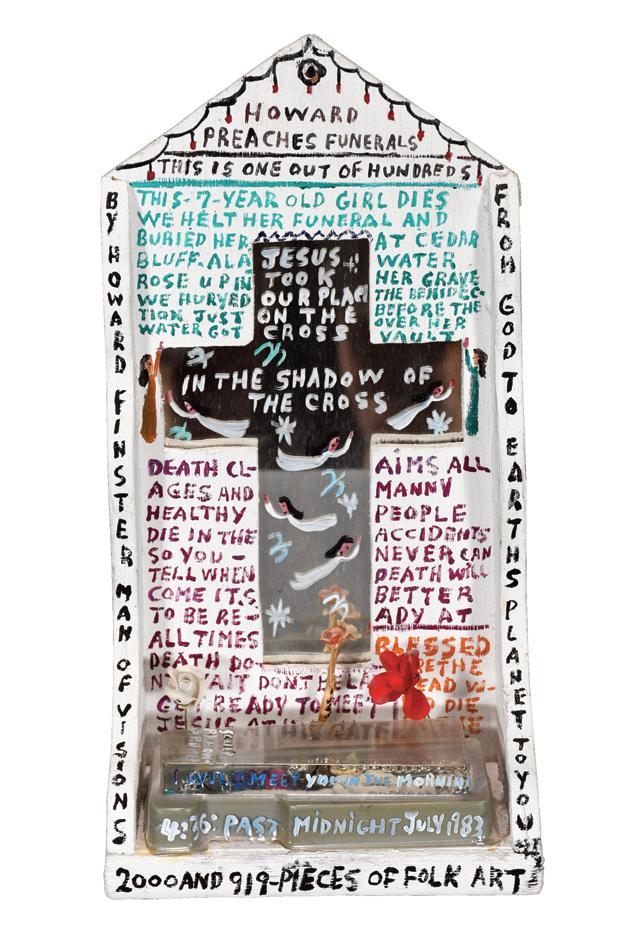 HOWARD
PREACHES FUNERALS
THIS IS ONE OUT OF HUNDREDS
BY HOWARD FINSTER MAN OF VISIONS
THIS-7-YEAR OLD GIRL DIES
WE HELT HER FUNERAL AND
BURIED HER AT CEDAR
BLUFF. ALA WATER
ROSE UP IN HER GRAVE
WE HURYED THE BENIDEC-
TION JUST BEFORE THE
WATER GOT OVER HER
VAULT
JESUS
TOOK
OUR PLACE
ON THE
CROSS
IN THE SHADOW OF
THE CROSS
DEATH CL- AIMS ALL
AGES AND MANNY
HEALTHY PEOPLE
DIE IN THE ACCIDENTS
SO YOU - NEVER CAN
TELL WHEN DEATH WILL
COME ITS BETTER
TO BE RE- ADY AT
ALL TIMES
DEATH DO-
WAIT DONT BE LATE
GET READY TO MEET
JESUS AT HIS
BLESSED
THE
DEAD
DIE
I WILL MEET YOU IN THE MORNING
4:36: PAST MIDNIGHT JULY, 1983
FROM GOD TO EARTHS PLANET TO YOU
2000 AND 919-PIECES OF FOLK ART